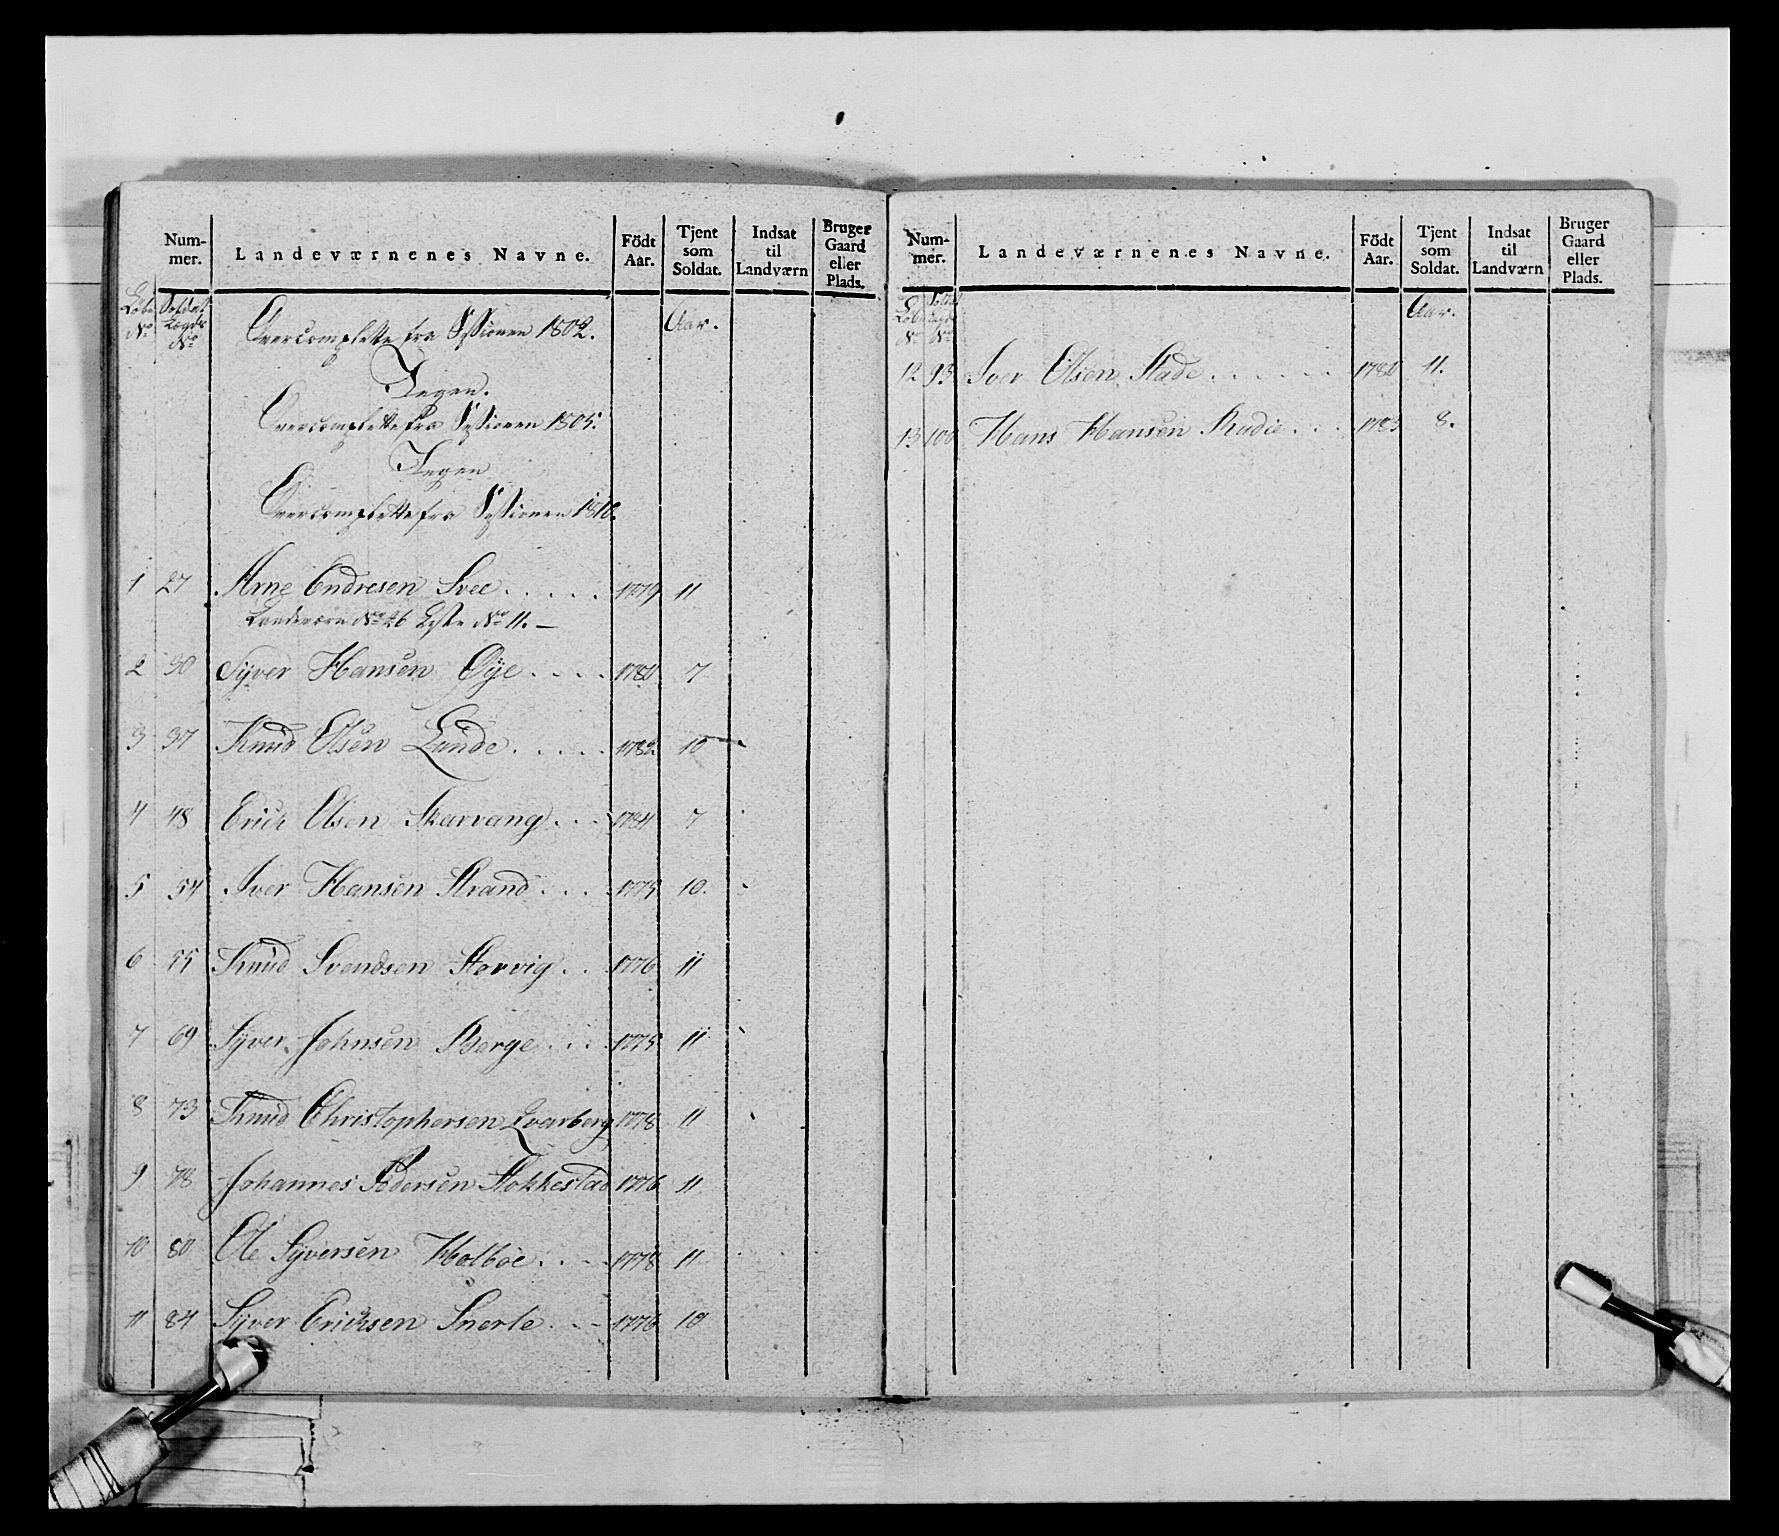 Num-
mer. Landeværnenes Navne. Födt Aar. Tjent som Soldat. Indsat til Landværn Bruger Gaard eller Plads.
Löbe No Soldat Lægds No Overcomplette fra Sessionen 1802. Aar.
Ingen.
Overcomplette fra Sessionen 1805.
Ingen
Overcomplette fra Sessionen 1810.
1 27 Arne Endresen Svee . . . . . 1779 11
Landeværn No 26 Liste No 11. —
2 30 Syver Hansen Øye . . . . 1780 7
3 37 Knud Olsen Lunde . . . . . 1782 10
4 48 Erich Olsen Skarvang . . . 1784 7
5 54 Iver Hansen Strand . . . 1775 10.
6 55 Knud Svendsen Storvig . . 1776 11
7 69 Syver Johnsen Berge . . . . 1775 11
8 73 Knud Christophersen Qvarberg 1778 11
9 78 Johannes Pedersen Stokkestad 1776 11
10 80 Ole Syversen Holböe . . . . 1778 11
11 84 Syver Erichsen Snerle . . . 1776 10
Num-
mer. Landeværnenes Navne. Födt Aar. Tjent som Soldat. Indsat til Landværn Bruger Gaard eller Plads.
Löbe No Soldat Lægds No Aar.
12 93 Iver Olsen Stade . . . . . . 1780 11.
13 100 Hans Hansen Rudie . . . 1783 8.